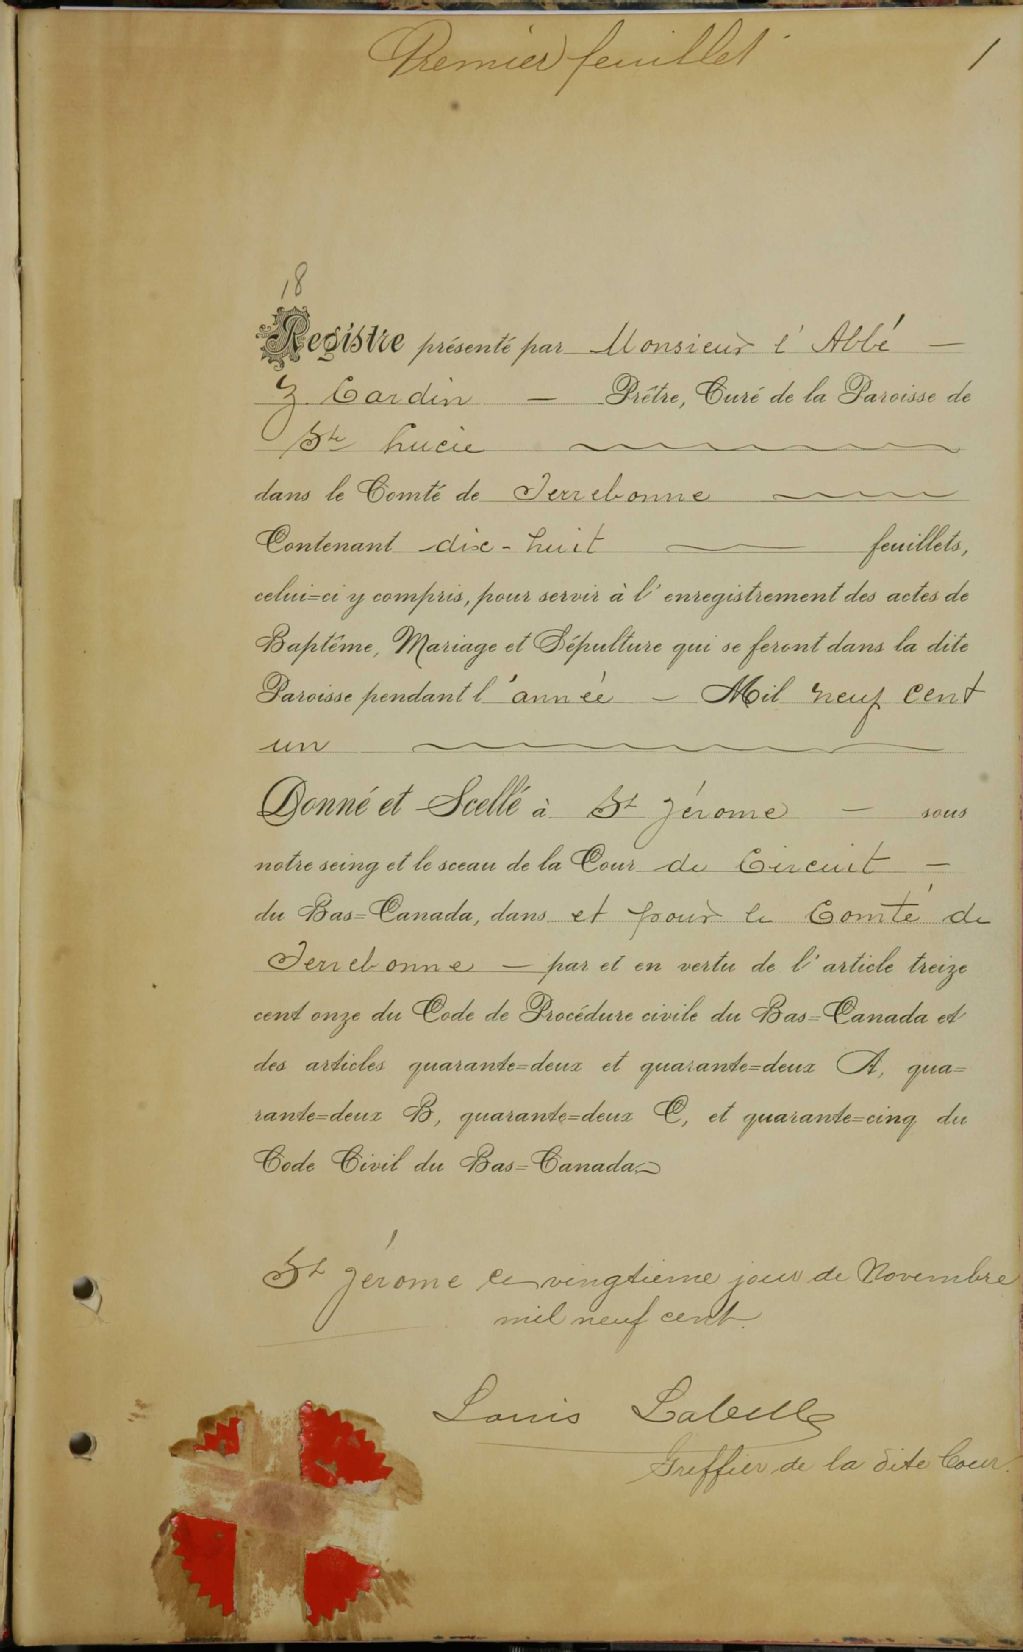 Premier feuillet
1
18
Registre présenté par Monsieur l'Abbé —
J. Cardin — Prêtre, Curé de la Paroisse de
Ste Lucie
dans le Comté de Terrebonne
Contenant dix-huit feuillets,
celui=ci y compris, pour servir à l'enregistrement des actes de
Baptême, Mariage et Sépulture qui se feront dans la dite
Paroisse pendant l'année — Mil neuf cent
un
Donné et Scellé à St Jérome — sous
notre seing et le sceau de la Cour de Circuit —
du Bas=Canada, dans et pour le Comté de
Terrebonne — par et en vertu de l'article treize
cent onze du Code de Procédure civile du Bas=Canada et
des articles quarante=deux et quarante=deux A, qua=
rante=deux B, quarante=deux C, et quarante=cinq du
Code Civil du Bas=Canada.
St Jérome ce vingtième jour de Novembre
mil neuf cent.
Louis Labelle
Greffier de la dite Cour.